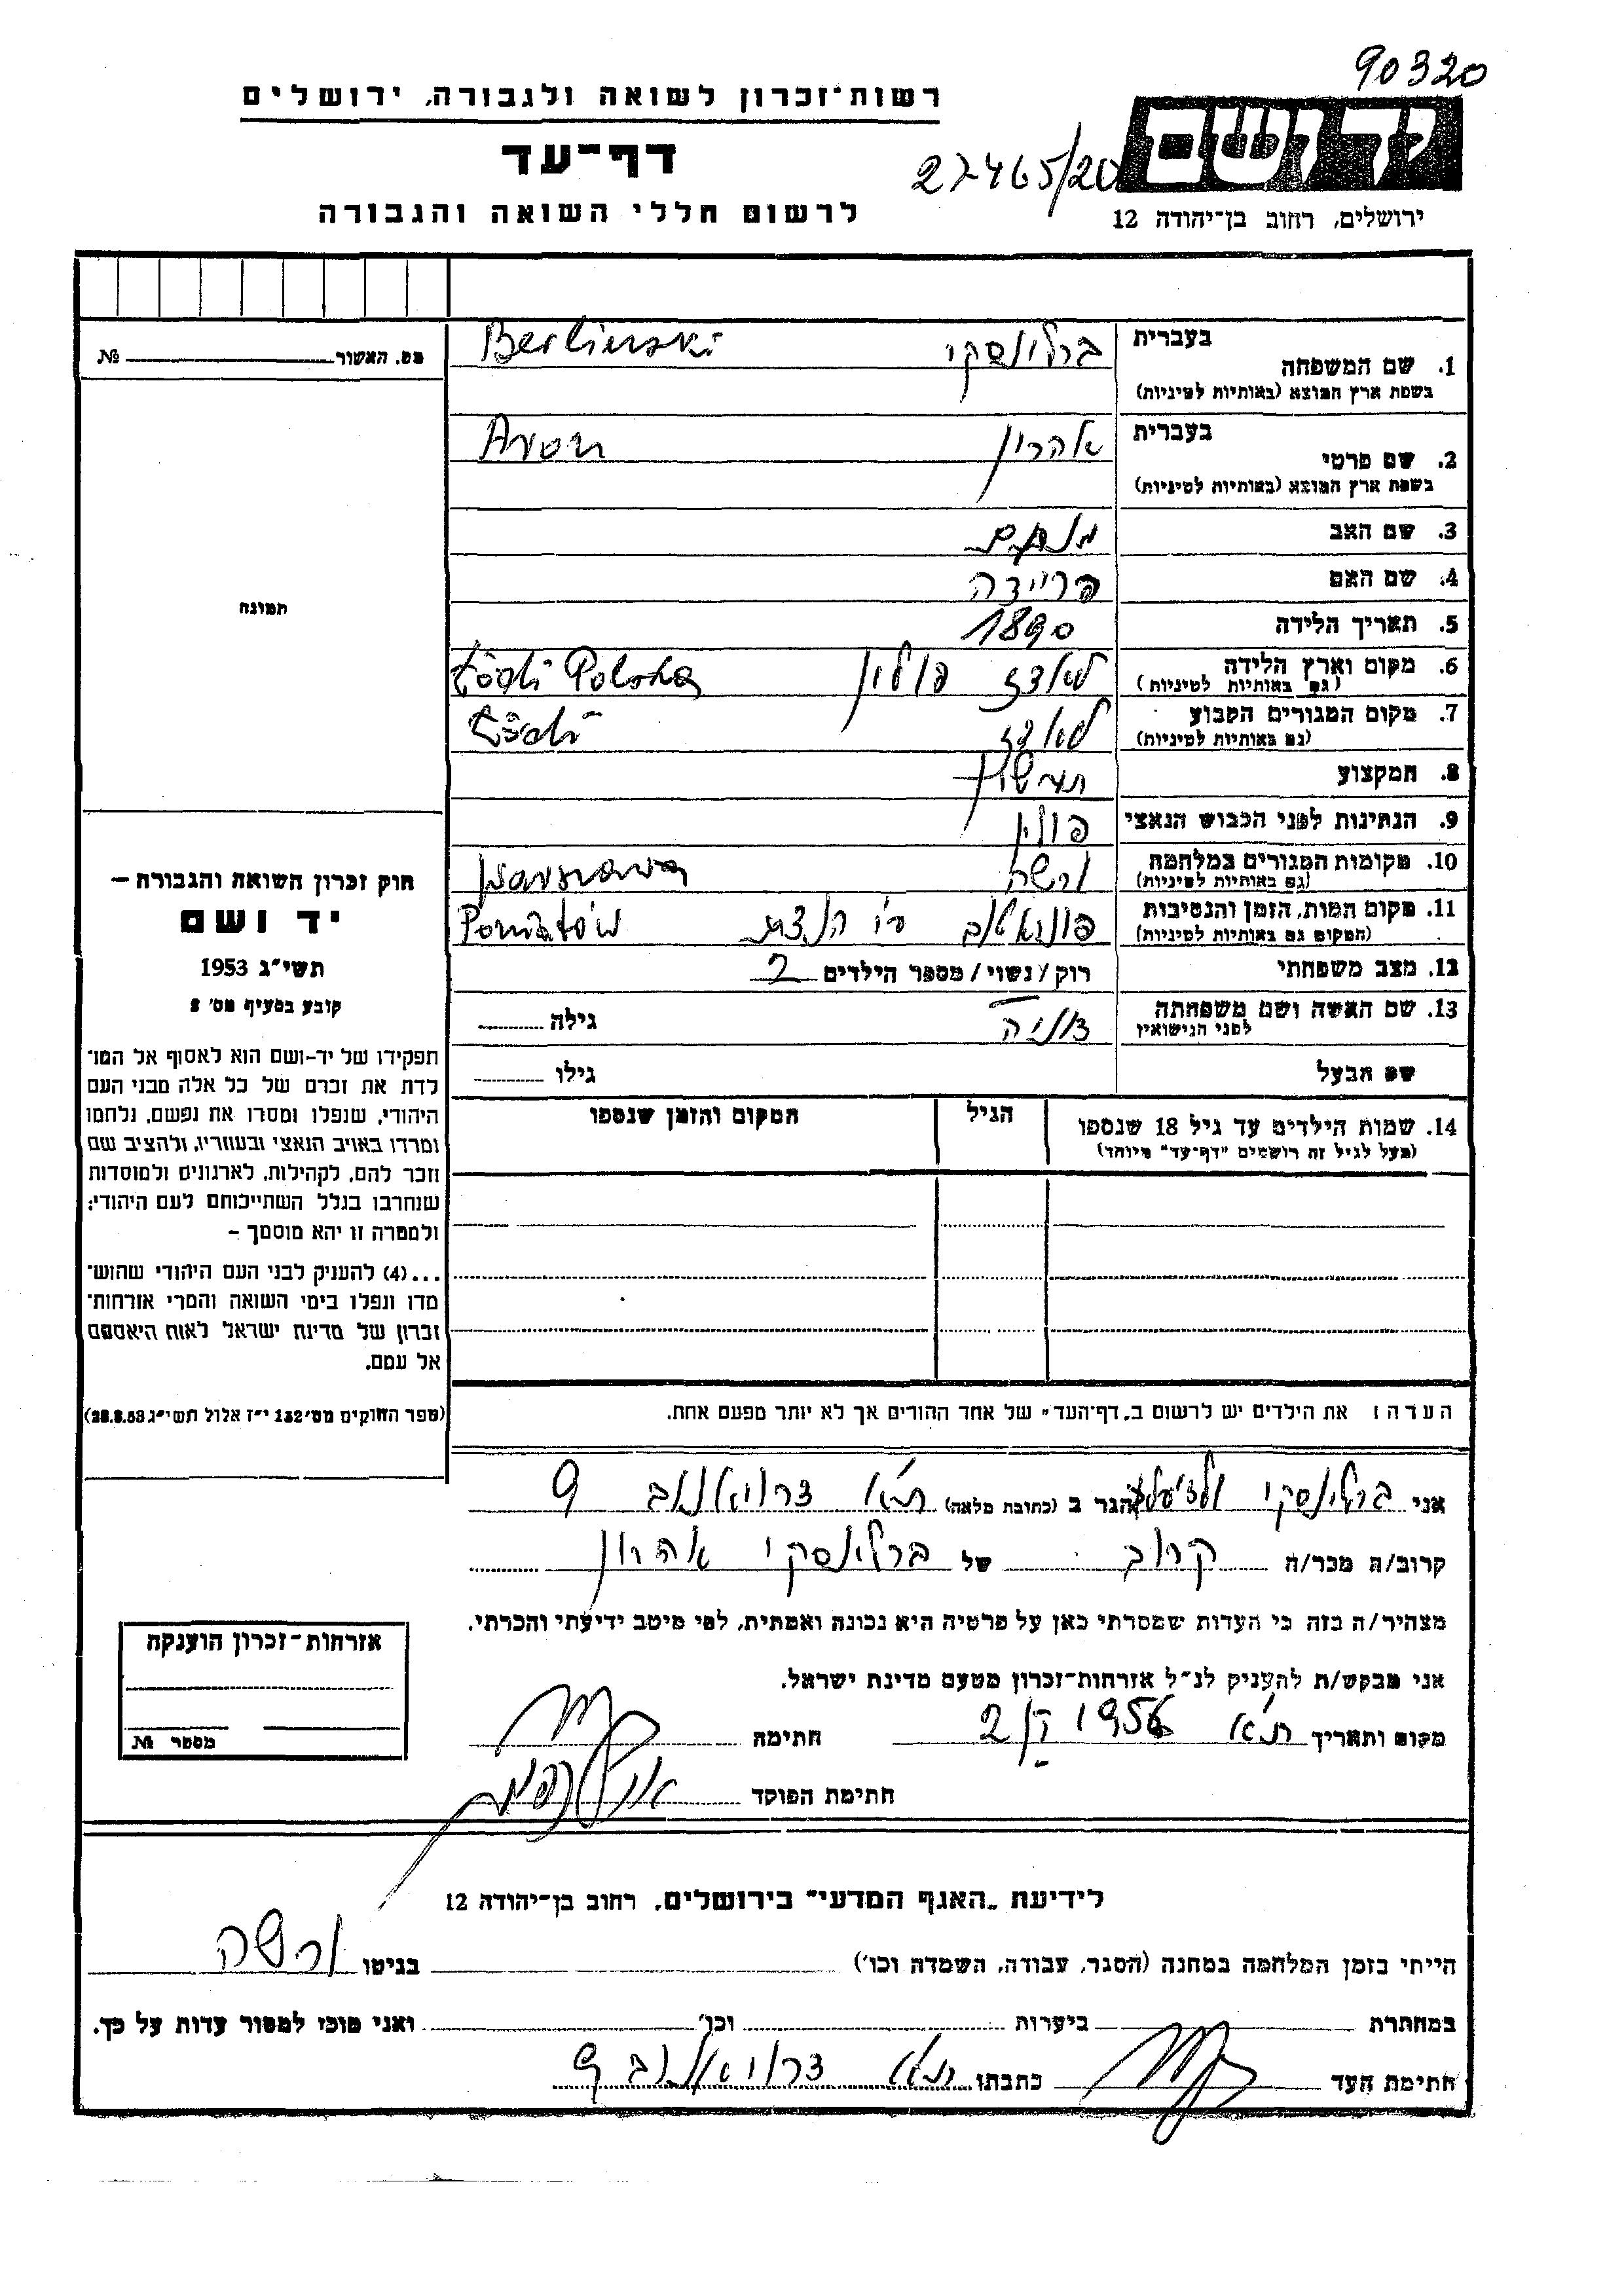 90320
רשות־זכרון לשואה ולגבורה, ירושלים
דף־עד
27465/20
יד ושם
לרשום חללי השואה והגבורה
ירושלים, רחוב בן־יהודה 12
מס. האשור № 
בעברית
1. שם המשפחה ברלינסקי Berlinski
בשפת ארץ המוצא (באותיות לטיניות)
בעברית
2. שם פרטי אהרון Aron
בשפת ארץ המוצא (באותיות לטיניות)
3. שם האב מנחם
4. שם האם פריידה
תמונה
5. תאריך הלידה 1890
6. מקום וארץ הלידה לאדז פולין Łódź Polska
(גם באותיות לטיניות)
7. מקום המגורים הקבוע לאדז Łódź
(גם באותיות לטיניות)
8. המקצוע
9. הנתינות לפני הכבוש הנאצי פולין
10. מקומות המגורים במלחמה ורשה Warszawa
(גם באותיות לטיניות)
11. מקום המות, הזמן והנסיבות פוניאטוב Poniatów
(המקום גם באותיות לטיניות)
12. מצב משפחתי רוק/נשוי/ מספר הילדים 2
13. שם האשה ושם משפחתה גילה
לפני הנישואין
שם הבעל גילו
14. שמות הילדים עד גיל 18 שנספו הגיל המקום והזמן שנספו
(מעל לגיל זה רושמים "דף־עד" מיוחד)
חוק זכרון השואה והגבורה —
יד ושם
תשי"ג 1953
קובע בסעיף מס' 2
תפקידו של יד-ושם הוא לאסוף אל המו־
לדת את זכרם של כל אלה מבני העם
היהודי, שנפלו ומסרו את נפשם, נלחמו
ומרדו באויב הנאצי ובעוזריו, ולהציב שם
וזכר להם, לקהילות, לארגונים ולמוסדות
שנחרבו בגלל השתייכותם לעם היהודי;
ולמטרה זו יהא מוסמך –
...(4) להעניק לבני העם היהודי שהוש־
מדו ונפלו בימי השואה והמרי אזרחות־
זכרון של מדינת ישראל לאות היאספם
אל עמם.
(ספר החוקים מס' 132 י"ז אלול תשי"ג 28.8.53)
הערה: את הילדים יש לרשום ב„דף־העד" של אחד ההורים אך לא יותר מפעם אחת.
אני ברלינסקי הגר ב (כתובת מלאה) ת"א דרויאנוב 9
קרוב/ה מכר/ה קרוב של ברלינסקי אהרון
מצהיר/ה בזה כי העדות שמסרתי כאן על פרטיה היא נכונה ואמתית, לפי מיטב ידיעתי והכרתי.
אני מבקש/ת להעניק לנ"ל אזרחות־זכרון מטעם מדינת ישראל.
מקום ותאריך ת"א 1956 חתימה
חתימת הפוקד
אזרחות־זכרון הוענקה
מספר №
לידיעת „האגף המדעי" בירושלים, רחוב בן־יהודה 12
הייתי בזמן המלחמה במחנה (הסגר, עבודה, השמדה וכו') בגיטו ורשה
במחתרת ביערות וכו' ואני מוכן למסור עדות על כך.
חתימת העד כתבתו ת"א דרויאנוב 9